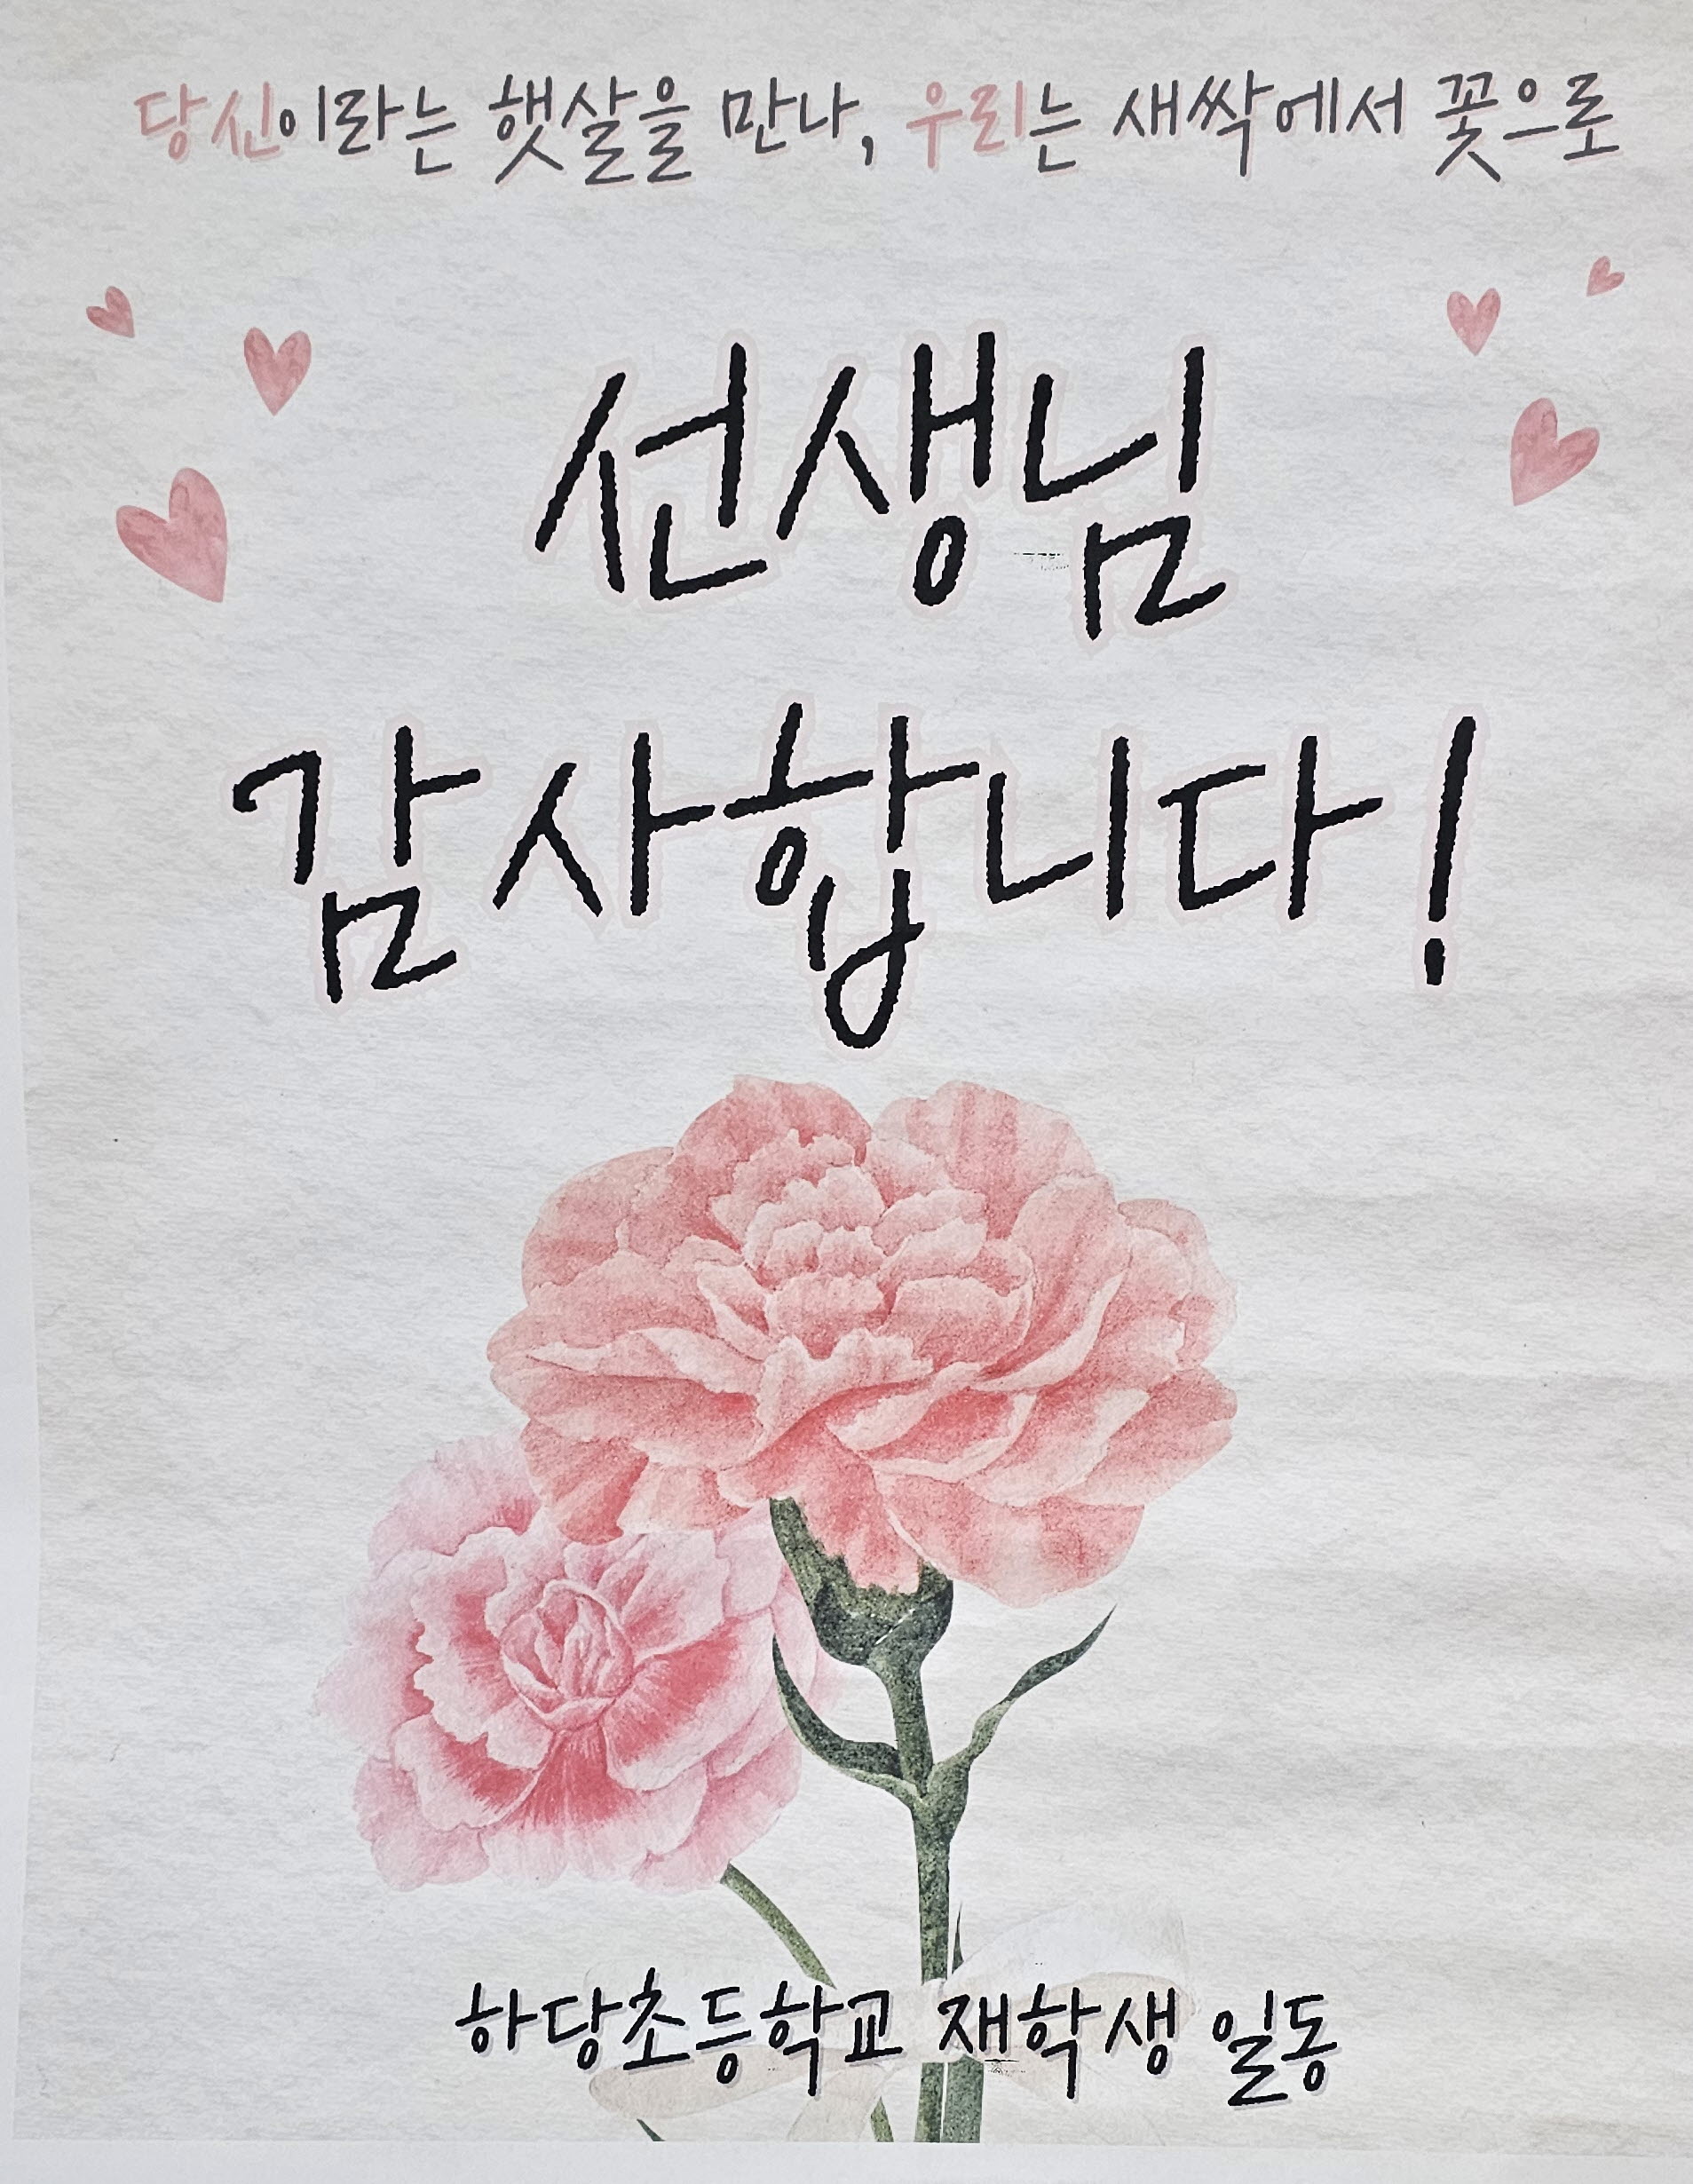 당신이라는 햇살을 만나, 우리는 새싹에서 꽃으로
선생님
감사합니다!
하당초등학교 재학생 일동